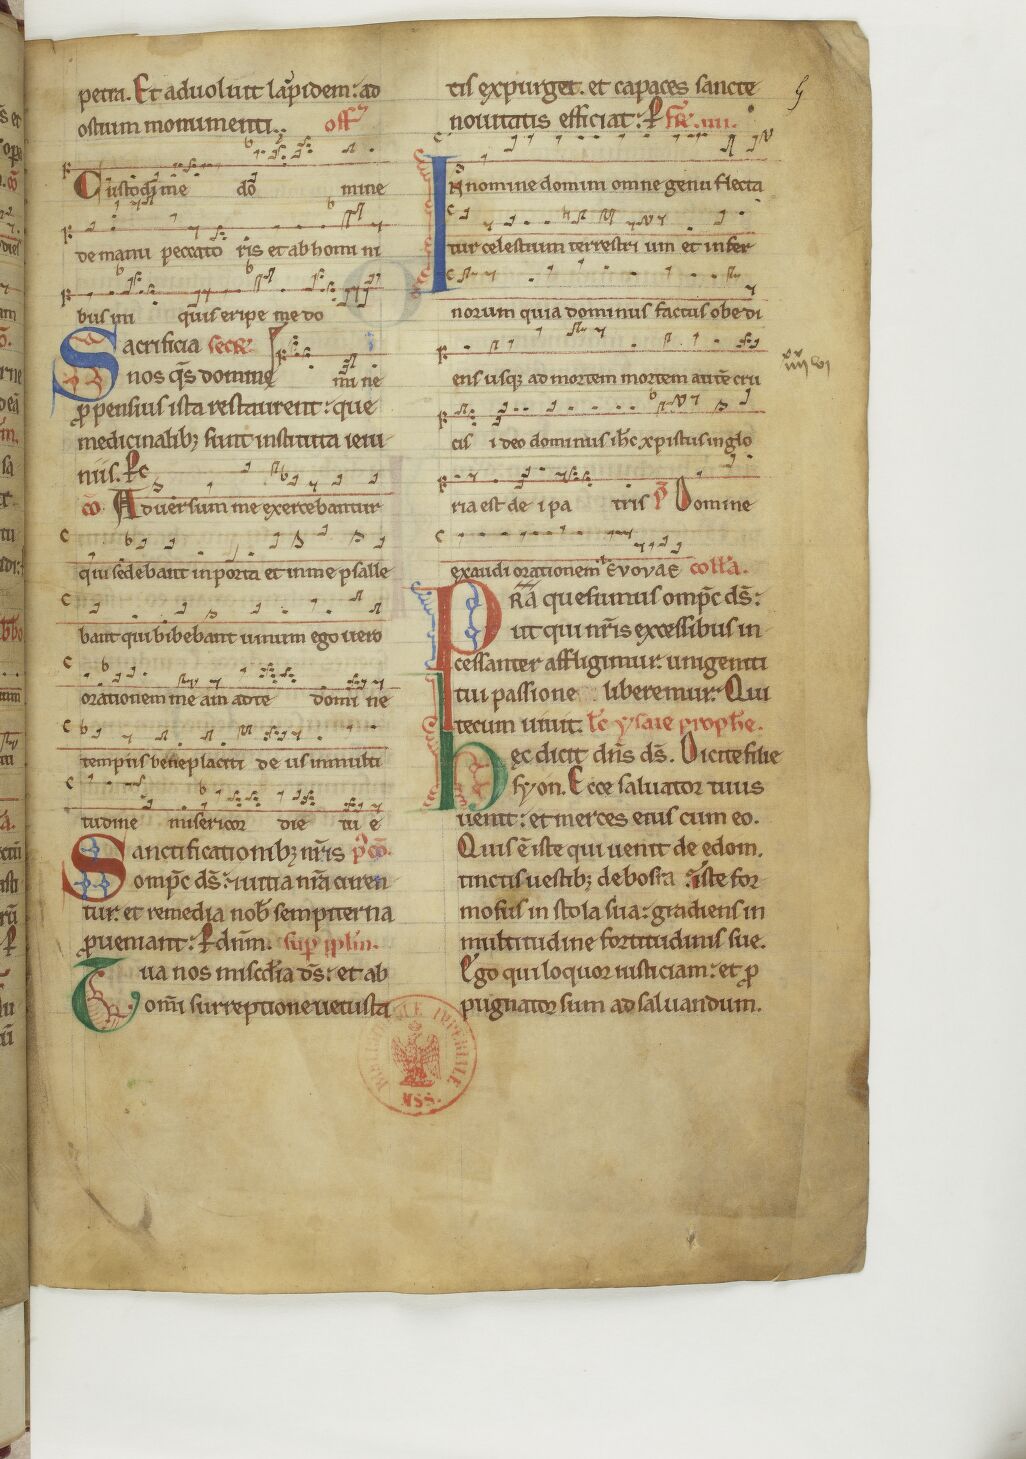 petra. Et aduoluit lapidem: ad
ostium monumenti. off
Custodi me do mine
de manu peccato ris et ab homi ni
bus ini quis eripe me do
Sacrificia secr.
nos qs domine mi ne
ppensius ista restaurent: que
medicinalibz sunt instituta ieiu-
niis. Pe
co Aduersum me exercebantur
qui sedebant in porta et in me psalle
bant qui bibebant uinum ego uero
orationem me am ad te domi ne
tempus beneplaciti de us in multi
tudine misericor die tu e
Sanctificationibz nris pco.
ompc ds: i uitia nra curen
tur: et remedia nob sempiterna
proueniant: P dnm. sup pplm.
Tua nos miscdia ds: et ab
omi surreptione uetusta
tis expurget. et capaces sancte
nouitatis efficiat: P fr. iiii.
In nomine domini omne genu flecta
tur celestium terrestri um et infer
norum quia dominus factus obedi
ens usqz ad mortem mortem aute cru
cis i deo dominus ihc xpistus in glo
ria est de i pa tris p Domine
exaudi orationem EVOVAE coll'a.
Pra quesumus ompc ds:
ut qui nris excessibus in
cessanter affligimur unigeniti
tui passione liberemur: Qui
tecum uiuit. lc ysaie prophe.
Hec dicit dns ds. Dicite filie
syon. Ecce saluator tuus
uenit: et merces eius cum eo.
Quis e iste qui uenit de edom.
tinctis uestibz de bosra iste for-
mosus in stola sua: gradiens in
multitudine fortitudinis sue.
Ego qui loquor iusticiam: et p
pugnator sum ad saluandum.
BIBLIOTHEQUE IMPERIALE
MSS.